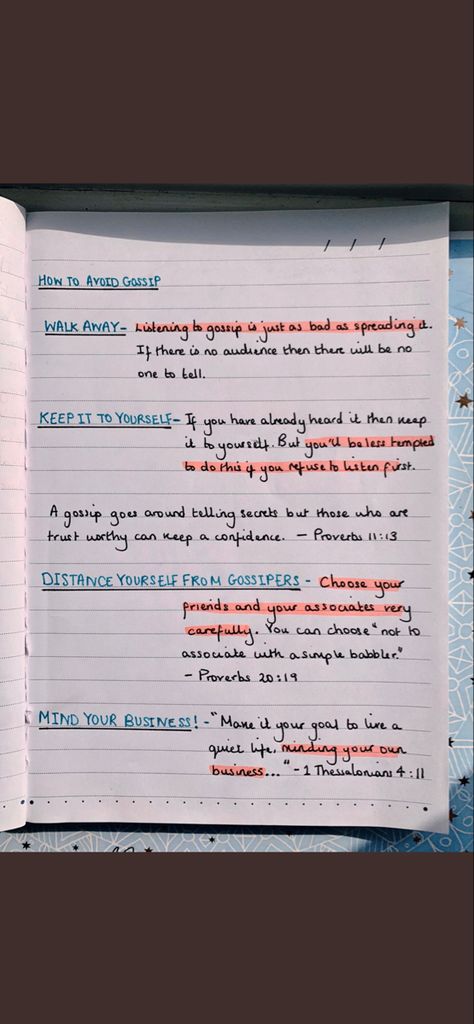 / / /
HOW TO AVOID GOSSIP
WALK AWAY - Listening to gossip is just as bad as spreading it.
If there is no audience then there will be no
one to tell.
KEEP IT TO YOURSELF - If you have already heard it then keep
it to yourself. But you'll be less tempted
to do this if you refuse to listen first.
A gossip goes around telling secrets but those who are
trust worthy can keep a confidence. - Proverbs 11:13
DISTANCE YOURSELF FROM GOSSIPERS - Choose your
friends and your associates very
carefully. You can choose "not to
associate with a simple babbler."
- Proverbs 20:19
MIND YOUR BUSINESS! - "Make it your goal to live a
quiet life, minding your own
business..." - 1 Thessalonians 4:11